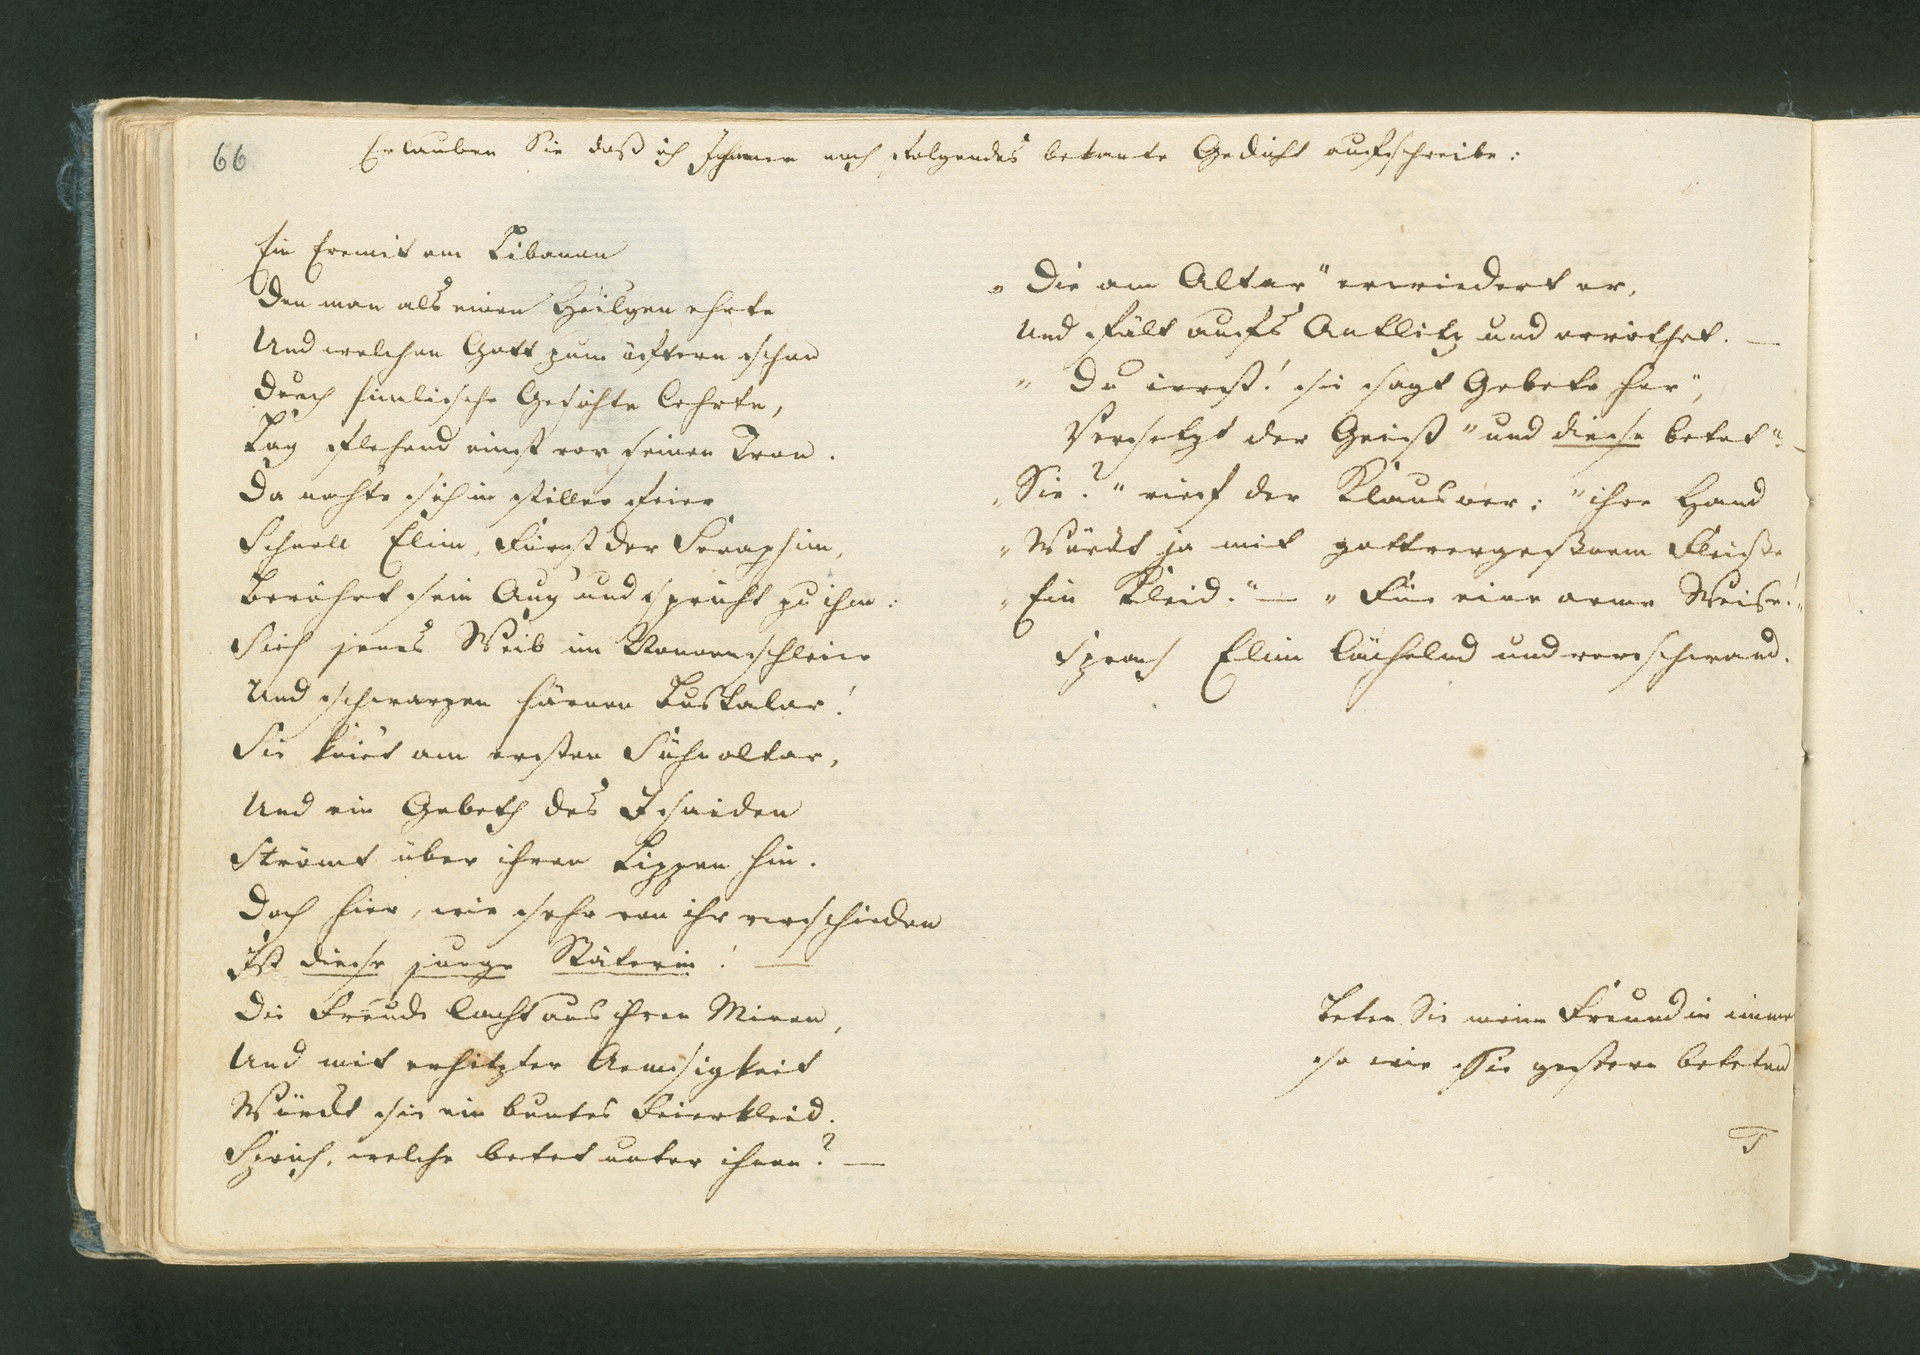 66
Erlauben Sie daß ich Ihnen noch folgendes bekante Gedicht aufschreibe:
Ein Eremit am Libanon
Den man als einen Heilgen ehrte
Und welchen Gott zum öftern schon
Durch sinnlische Gesichte lehrte,
Lag flehend einst vor seinen Tron.
Da nahte sich in stiller Feier
Schnell Elim, Fürst der Seraphim,
Berührt sein Aug und spricht zu ihm:
Sieh jenes Weib im Nonnenschleier
Und schwarzen härnen Bustalar!
Sie kniet am ersten Sühnaltar,
Und ein Gebeth des Isaiden
Strömt über ihren Lippen hin.
Doch hier, wie sehr von ihr verschieden
Ist diese junge Städterin! —
Die Freude lacht aus ihren Minen,
Und mit erhitzter Aemsigkeit
Würckt sie ein buntes Feierkleid.
Sprich, welche betet unter ihnen? —
„Die am Altar" erwiedert er,
Und fält aufs Antlitz und erröthet. —
" Du irrst! sie sagt Gebete her",
Versetzt der Geist "und diese betet" –
„Sie?" rief der Klausner: "ihre Hand
„Würckt ja mit gottvergeßnem Fleiße
„Ein Kleid." — „Für eine arme Weise!"
Sprach Elim lächelnd und verschwand.
Beten Sie meine Freundin immer
so wie Sie gestern beteten
T